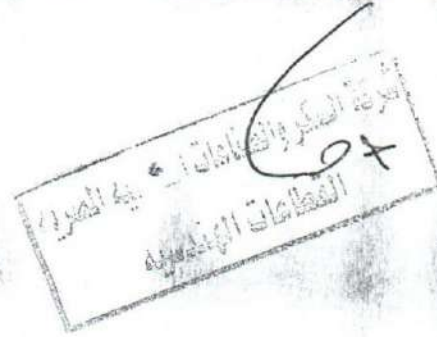 شركة السكر والصناعات التكاملية المصرية
القطاعات الهندسية